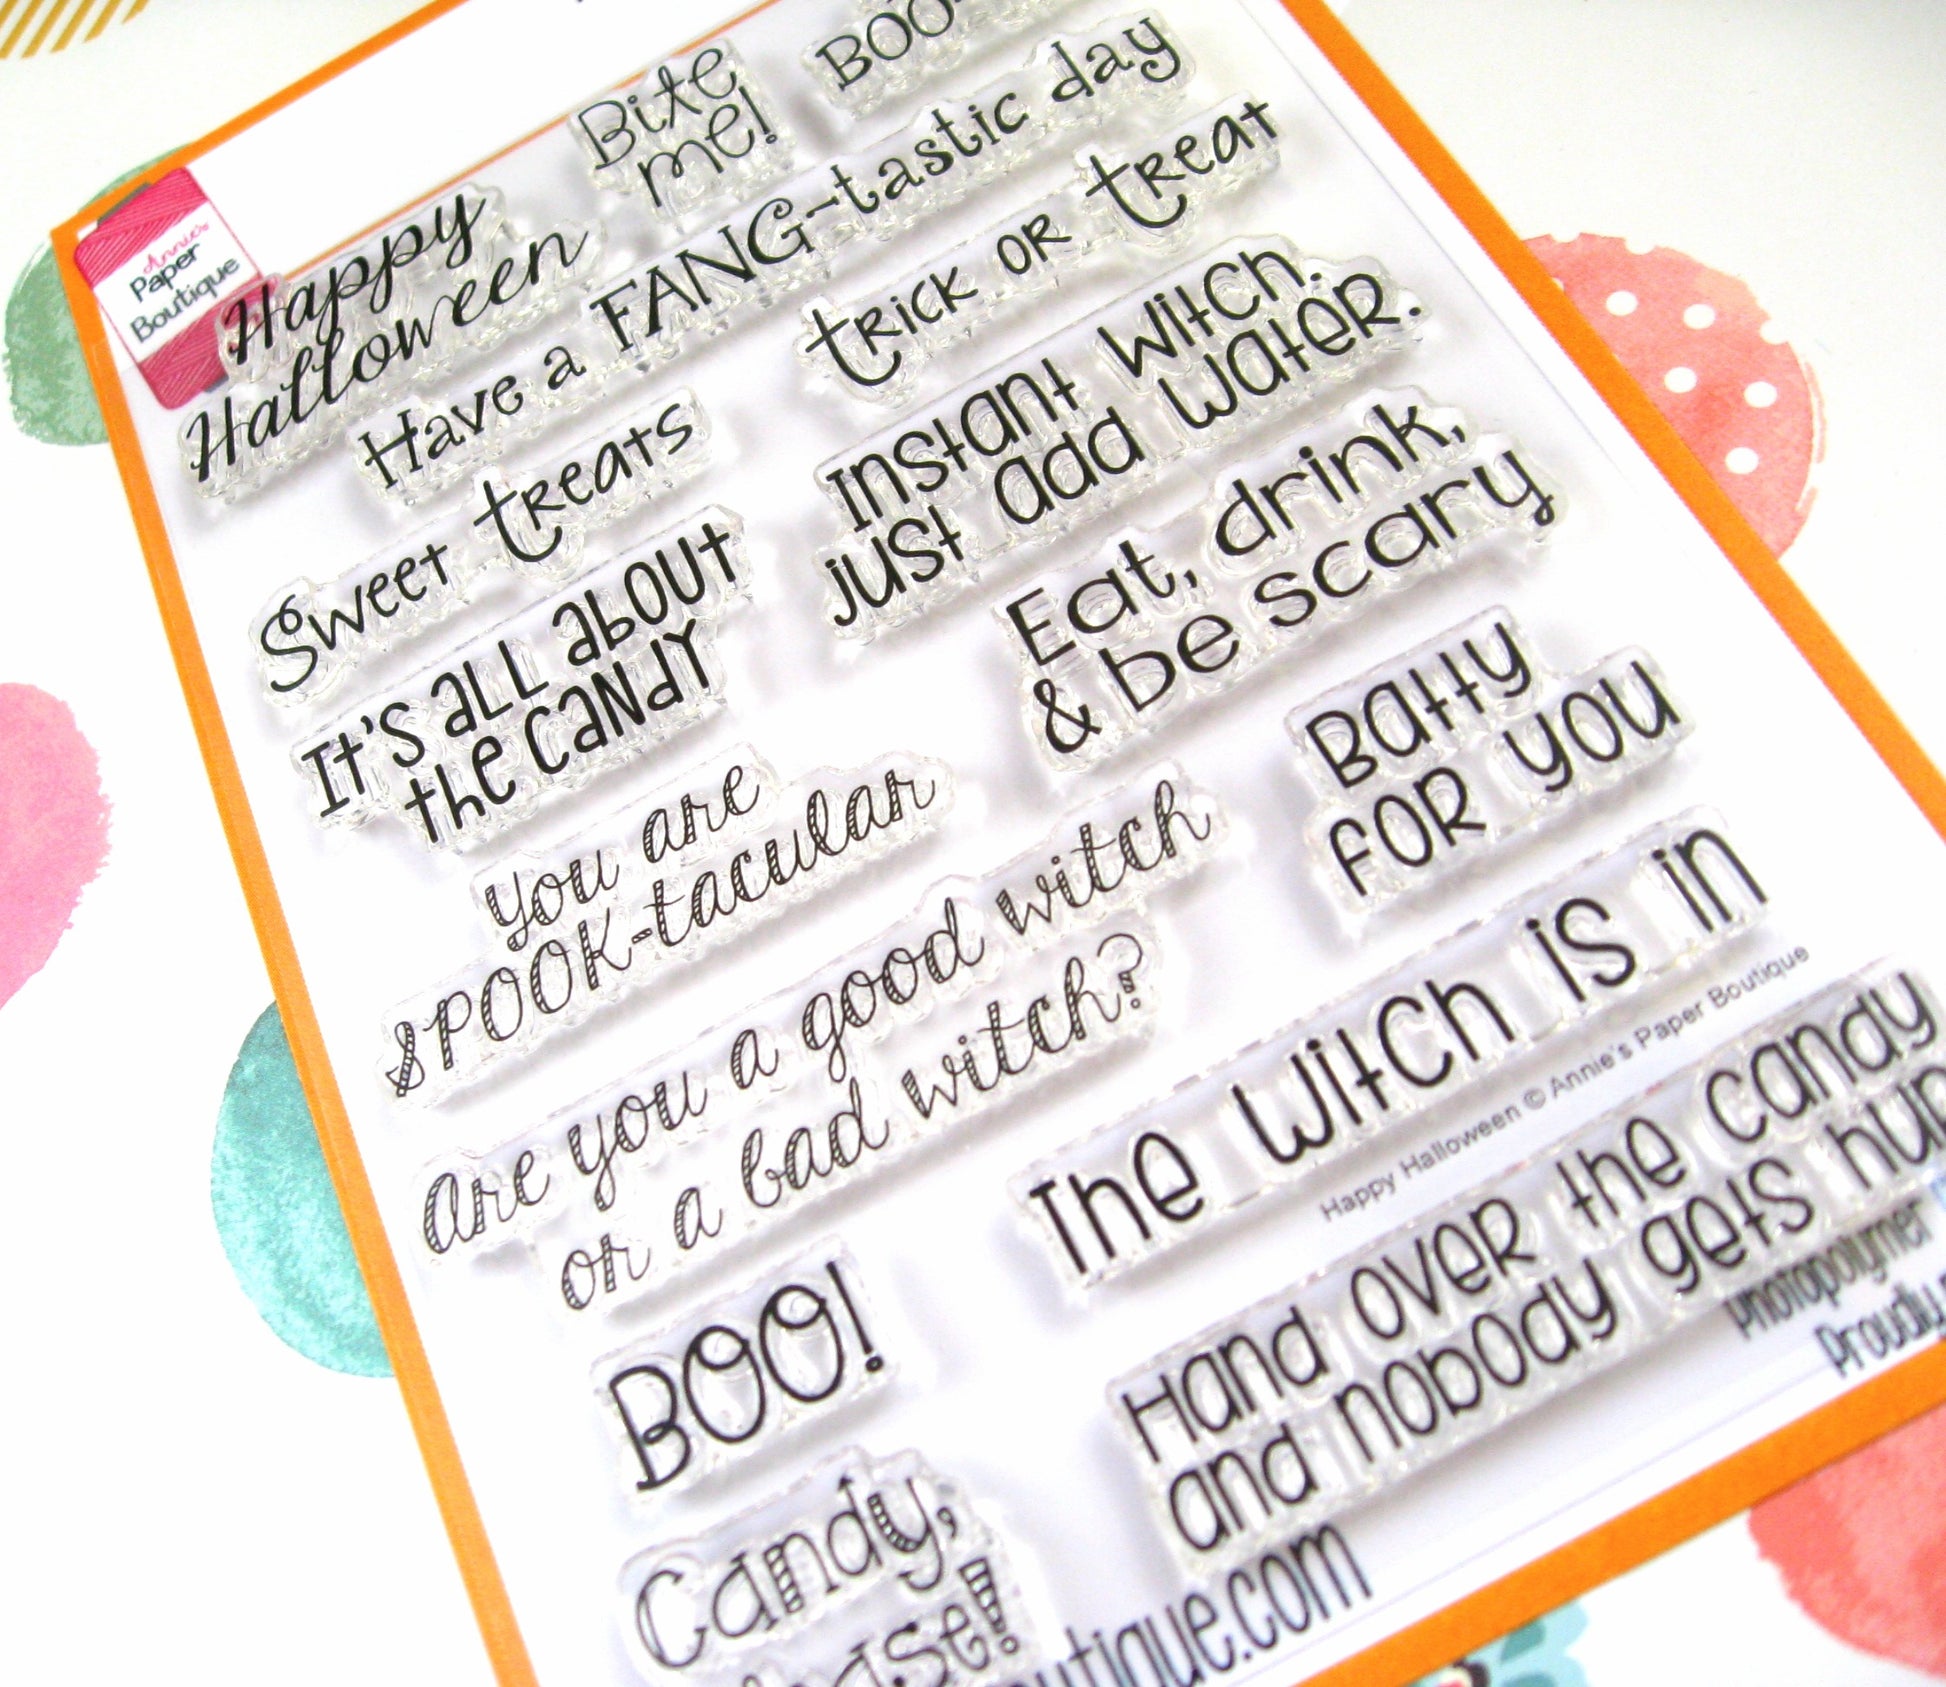 Annie's
Paper
Boutique
Bite
me!
BOO
Happy
Halloween
Have a FANG-tastic day
trick or treat
Sweet treats
Instant witch.
just add water.
It's all about
the candy
Eat, drink,
& be scary
Batty
for you
you are
SPOOK-tacular
Are you a good witch
or a bad witch?
The witch is in
Happy Halloween © Annie's Paper Boutique
BOO!
Hand over the candy
and nobody gets
Photopolymer
Proudly
Candy,
utique.com